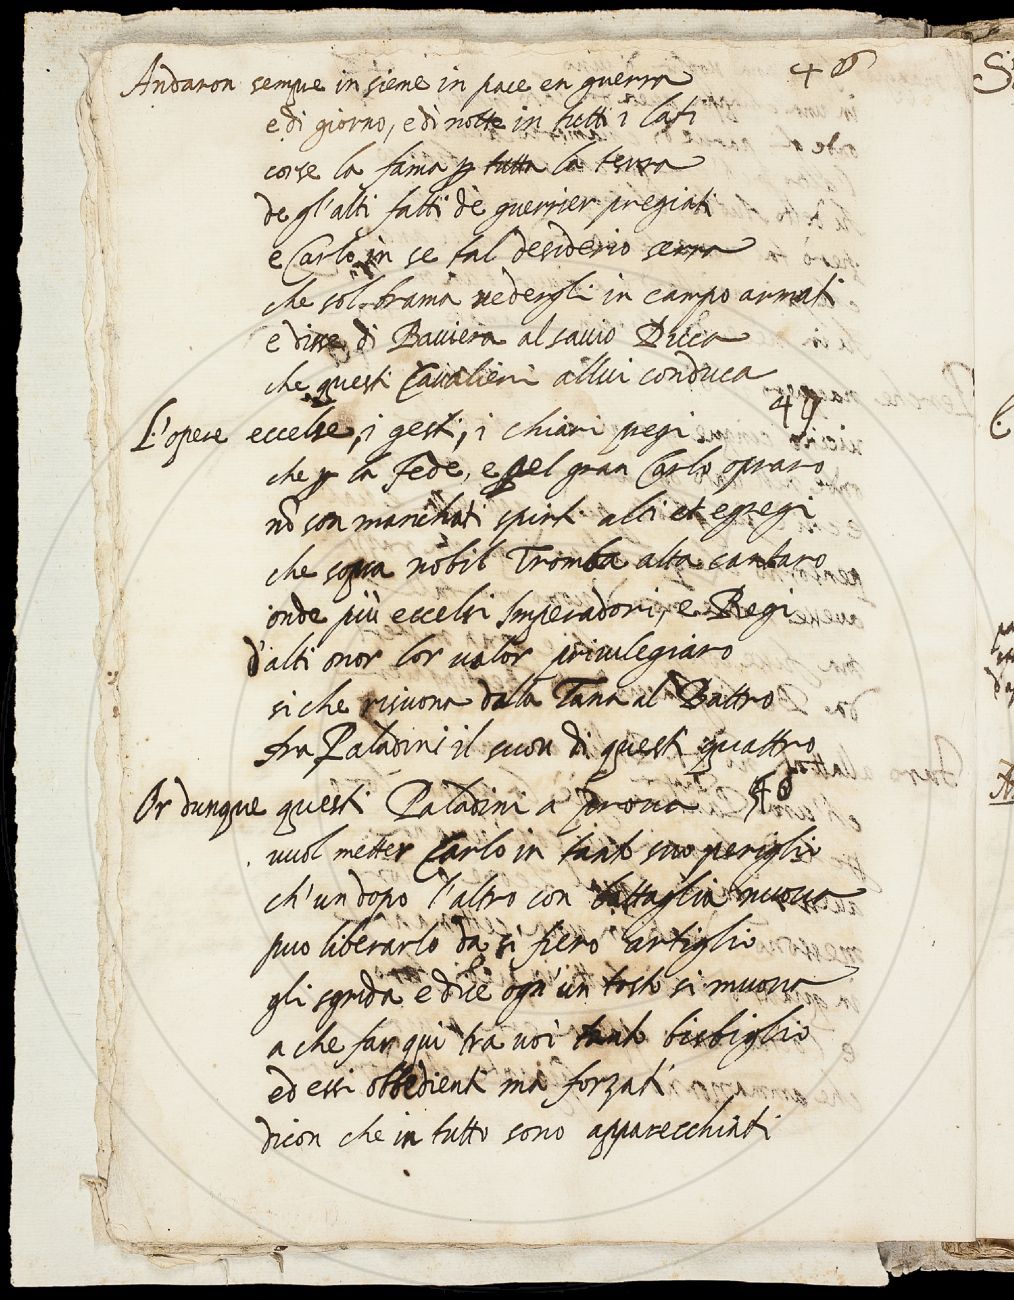 46
Andaron sempre insieme in pace en guerra
e di giorno, e di notte in tutti i lati
corse la fama p tutta la terra
de gl'alti fatti de guerrier pregiati
e Carlo in se tal desiderio serra
che sol brama vedergli in campo armati
e disse di Baviera al savio Duca
che questi Cavalieri allui conduca
47
L'opere eccelse, i gesti, i chiari pregi
che p la Fede, e pel gran Carlo opraro
nō son manchati spirti alti et egregi
che sopra nobil Tromba alta cantaro
onde più eccelsi Imperadori, e Regi
d'alti onor lor valor privilegiaro
si che risuona dalla Tana al Battro
fra Paladini il suon di questi quattro
48
Or dunque questi Paladini a prova
vuol metter Carlo in tanto suo periglio
ch'un dopo l'altro con battaglia nuova
può liberarlo da si fiero artiglio
gli sgrida e dice ogn'un tosto si muova
a che far qui tra voi tanto bisbiglio
ed essi obbedienti ma forzati
dicon che in tutto sono apparecchiati